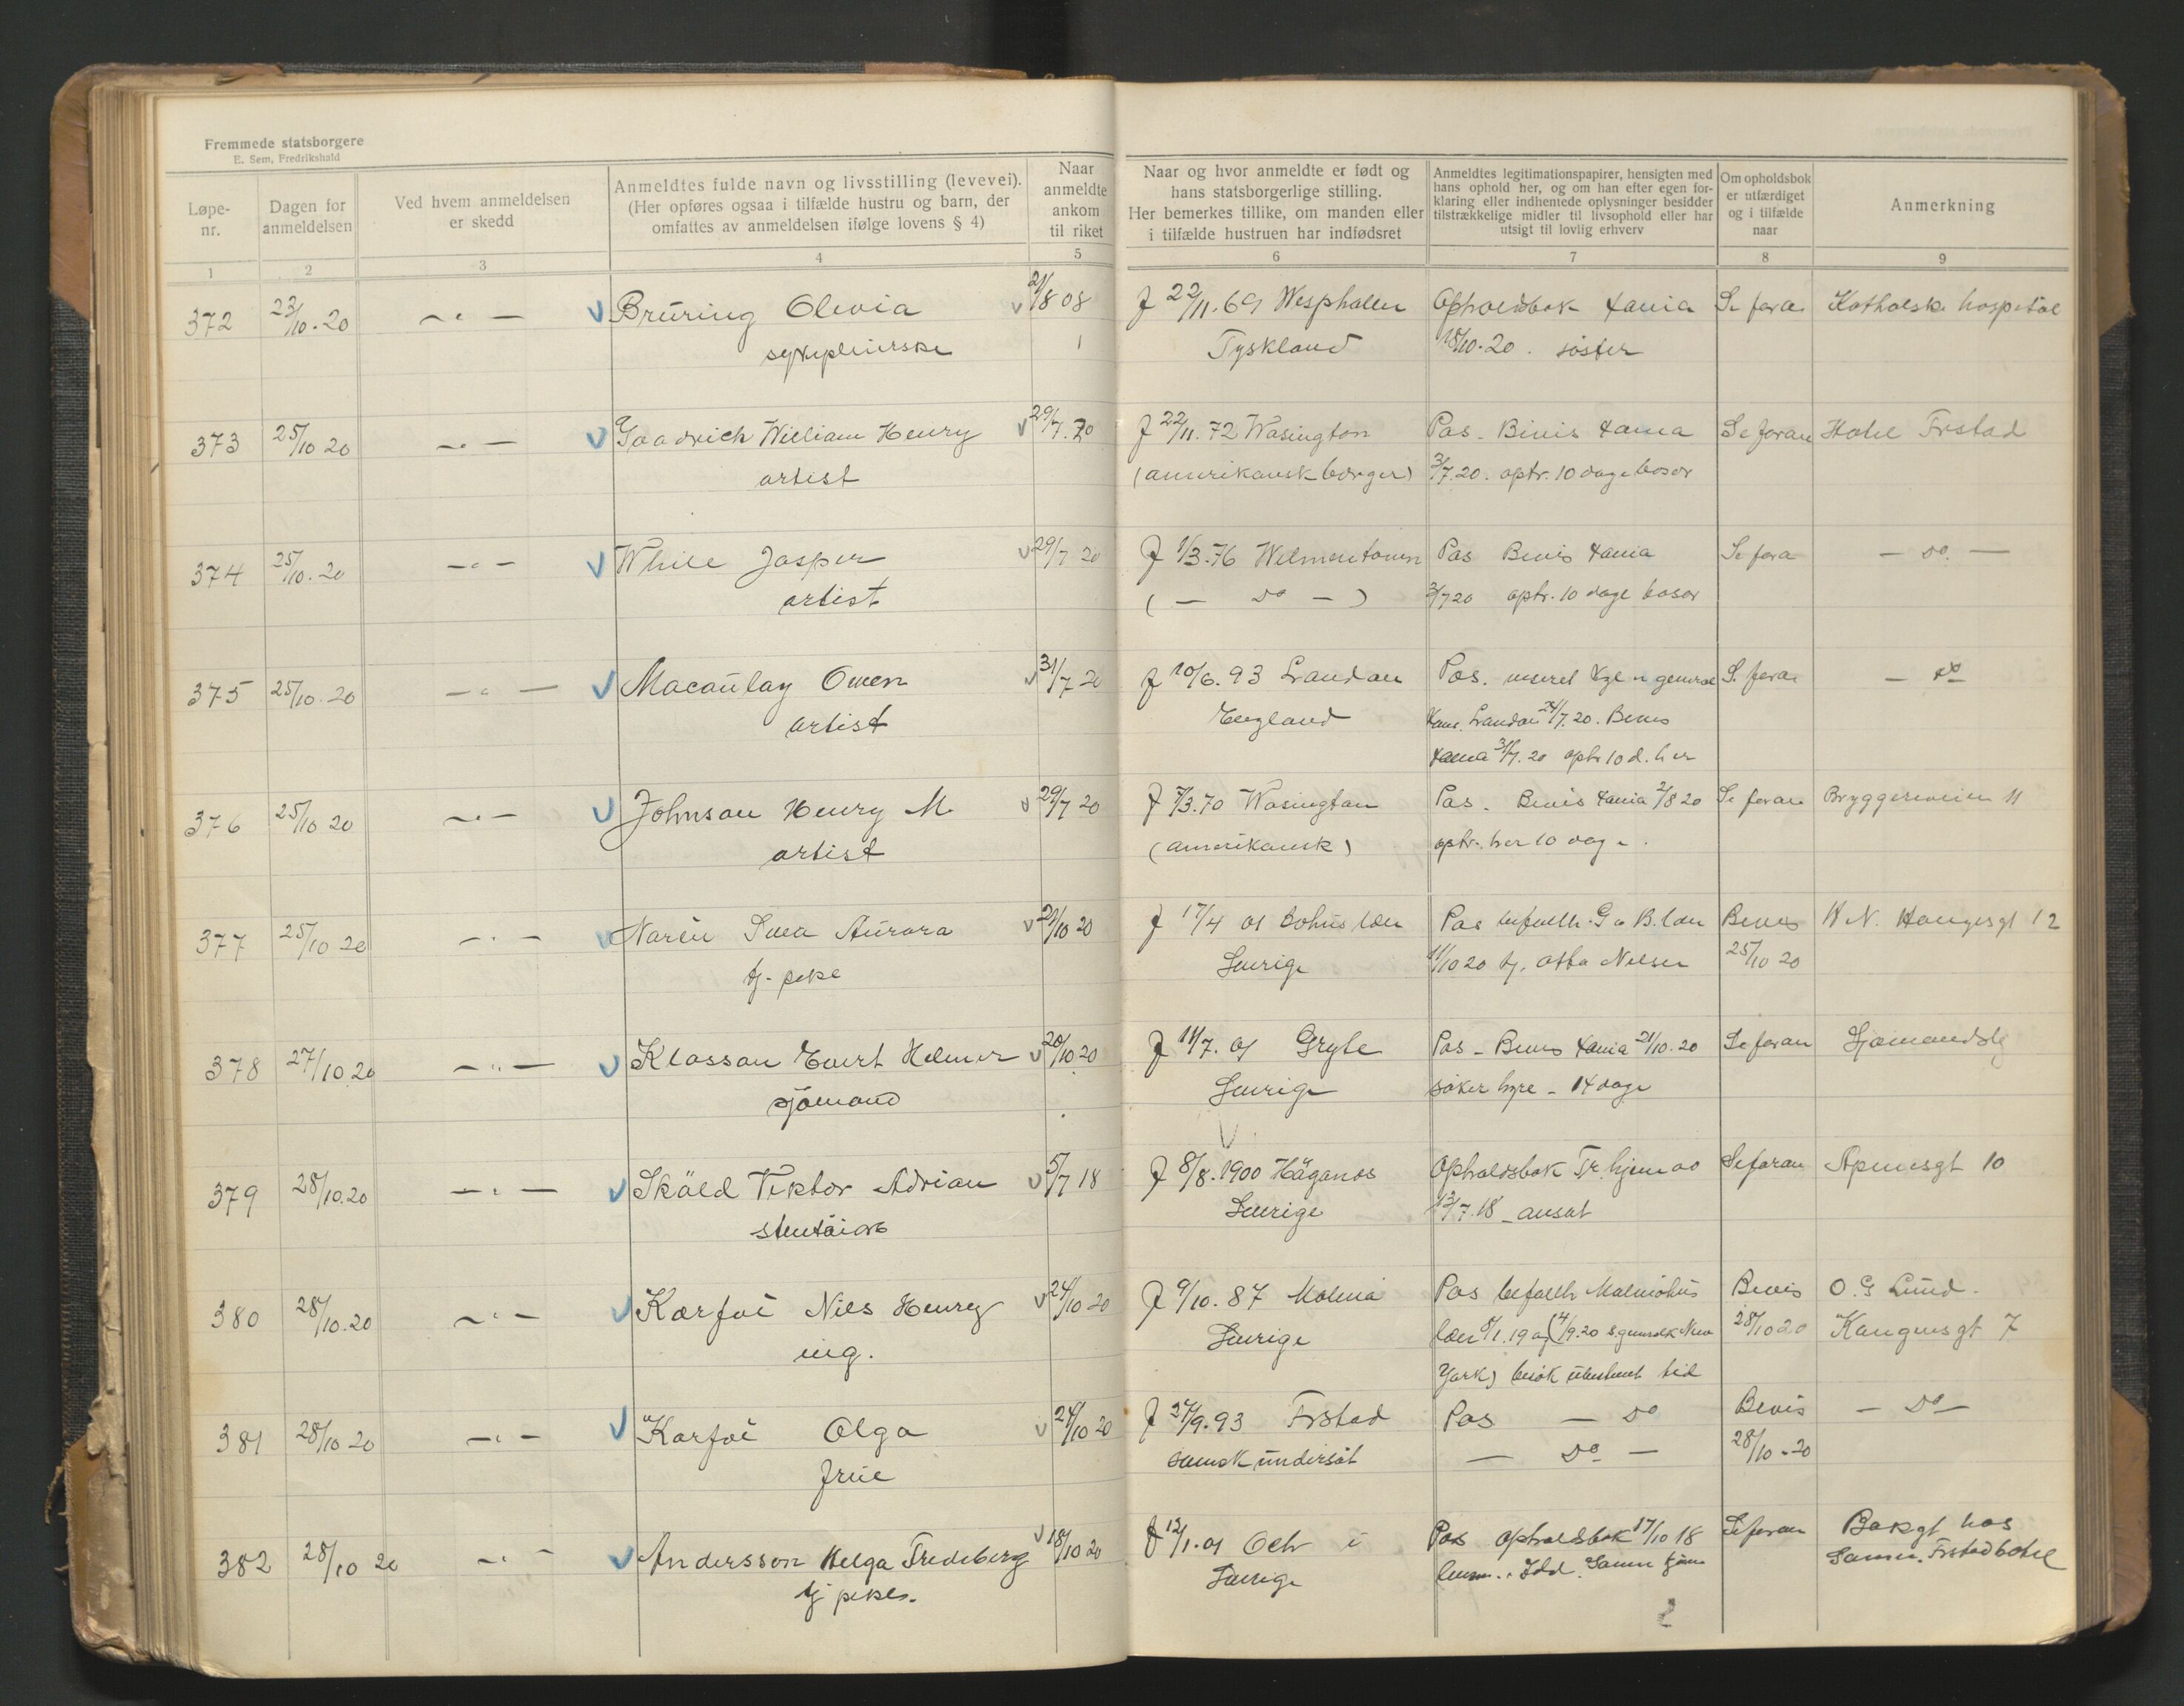 Fremmede statsborgere
E. Sem, Fredrikshald
Løpe-
nr.
Dagen for
anmeldelsen
Ved hvem anmeldelsen
er skedd
Anmeldtes fulde navn og livsstilling (levevei).
(Her opføres ogsaa i tilfælde hustru og barn, der
omfattes av anmeldelsen ifølge lovens § 4)
Naar
anmeldte
ankom
til riket
Naar og hvor anmeldte er født og
hans statsborgerlige stilling.
Her bemerkes tillike, om manden eller
i tilfælde hustruen har indfødsret
Anmeldtes legitimationspapirer, hensigten med
hans ophold her, og om han efter egen for-
klaring eller indhentede oplysninger besidder
tilstrækkelige midler til livsophold eller har
utsigt til lovlig erhverv
Om opholdsbok
er utfærdiget
og i tilfælde
naar
Anmerkning
1 2 3 4 5 6 7 8 9
372 23/10.20 — " — Brüring Olevia 21/8 08 f 22/11.69 Wesphallen Opholdsbok Xania Se foran Katholsk hospital
sykepleierske Tyskland 18/10.20. søster
373 25/10 20 — " — Goodrich William Henry 29/7.20 f 22/11.72 Wasington Pas. Bivis Xania Se foran Hotel Frstad
artist (amerikansk borger) 3/7.20. optr. 10 dage
374 25/10.20 — " — White Jasper 29/7 20 f 1/3.76 Pas Bevis Xania Se foran — Do. —
artist ( — Do — ) 3/7 20 optr. 10 dage
375 25/10.20 — " — Macaulay Owen 31/7 20 f 10/6.93 London Pas. general Se foran — Do
artist England London 24/7.20. Bevis
Xania 31/7.20 optr 10 d. her
376 25/10 20 — " — Johnson Henry M. 29/7 20 f 7/3.70 Wasington Pas. Bevis Xania 2/8 20 Se foran Bryggeriveien 11
artist (amerikansk) optr. her 10 dage.
377 25/10 20 — " — Norén Svea Aurora 21/10 20 f 17/4 01 Bohus län Pas befallh. G o B. län Bevis H N. Haugesgt 12
tj. pike Sverige 11/10 20 tj. Otto Nilsen 25/10 20
378 27/10 20 — " — Klasson Evert Helmer 20/10.20 f 11/7.01 Gryte Pas - Bevis Xania 21/10.20 Se foran
sjømand Sverige søker hyre - 14 dage
379 28/10.20 — " — Sköld Viktor Adrian 5/7 18 f 8/8.1900 Häganäs Opholdsbok Se foran Apenesgt 10
Sverige 13/7.18 ansat
380 28/10.20 — " — Karfvé Nils Henry 24/10 20 f 9/10.87 Malmö Pas befallh Malmöhus Bevis O. G Lund.
ing. Sverige län 8/1.19 og (14/9.20 s. generalk New 28/10 20 Kongensgt 7
York) besøk ubestemt tid
381 28/10 20 — " — Karfvé Olga 24/10 20 f 24/9.93 Frstad Pas — Do Bevis — Do —
frue svensk undersåt — Do — 28/10.20
382 28/10 20 — " — Andersson Helga Fredeborg 18/10 20 f 12/1.01 Sverige Pas opholdsbok 17/10 18 Se foran Bakgt hos
tj pike. Idd. Samme Frstad hotel